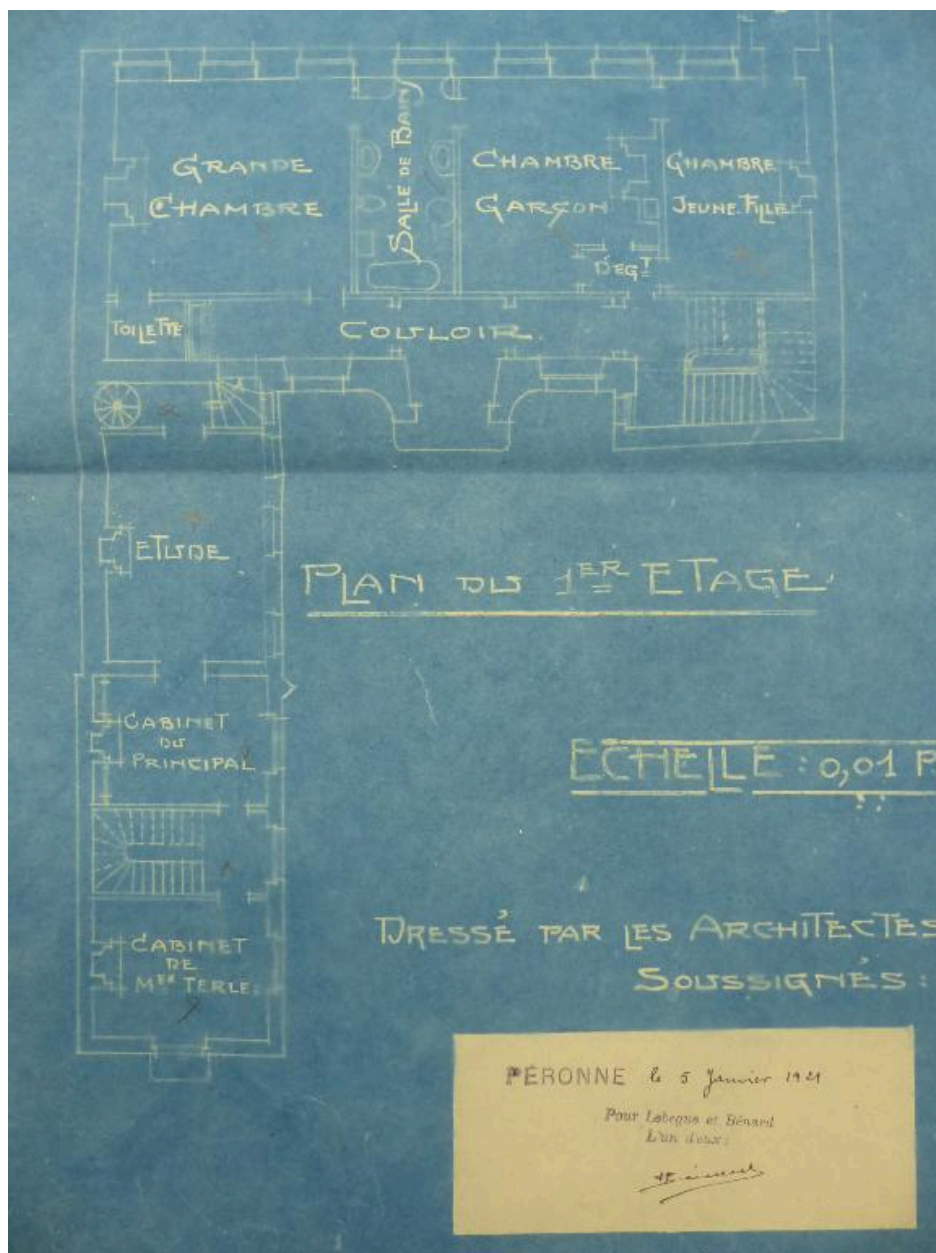 GRANDE
CHAMBRE
SALLE DE BAIN
CHAMBRE
GARÇON
CHAMBRE
JEUNE FILLE
DÉGT
TOILETTE
COULOIR.
ETUDE
PLAN DU 1ER ETAGE
CABINET
DU
PRINCIPAL
ECHELLE : 0,01 P
CABINET
DE
MER TERLE.
DRESSÉ PAR LES ARCHITECTES
SOUSSIGNÉS :
PÉRONNE le 5 Janvier 1921
Pour Lebegue et Bénard
L'un d'eux :